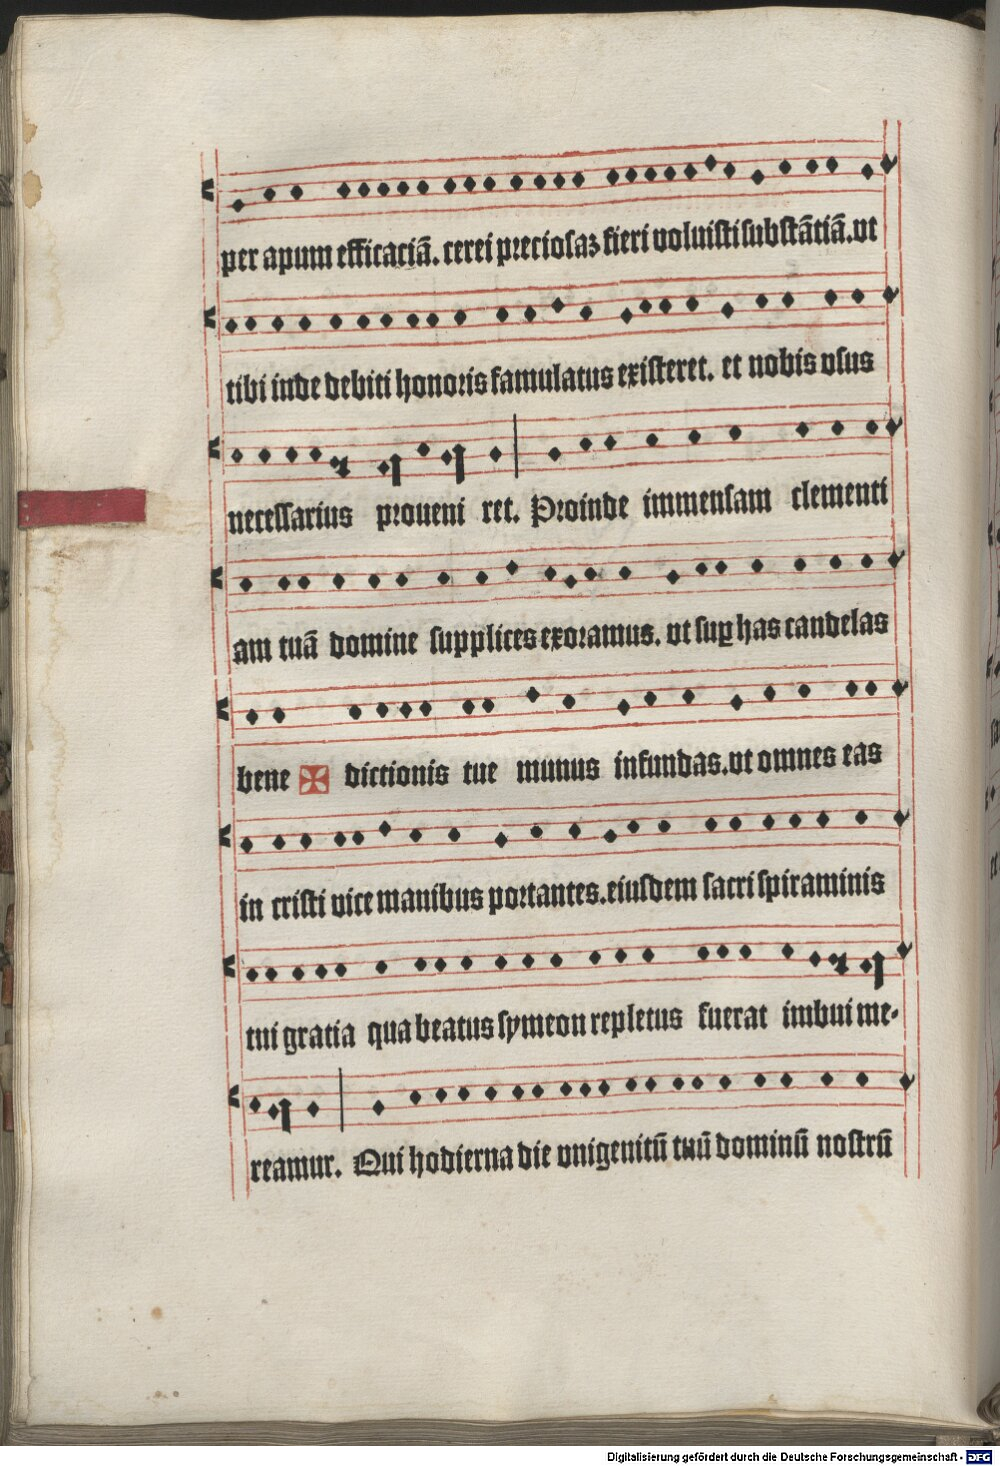 per apum efficaciā. cerei preciosaꝫ fieri voluisti substātiā. ut
tibi inde debiti honoris famulatus existeret. et nobis vsus
necessarius proueni ret. Proinde immensam clementi
am tuā domine supplices exoramus. ut suꝑ has candelas
bene ✠ dictionis tue munus infundas. ut omnes eas
in cristi vice manibus portantes. eiusdem sacri spiraminis
tui gratia qua beatus symeon repletus fuerat imbui me-
reamur. Qui hodierna die vnigenitū tuū dominū nostrū
Digitalisierung gefördert durch die Deutsche Forschungsgemeinschaft - DFG